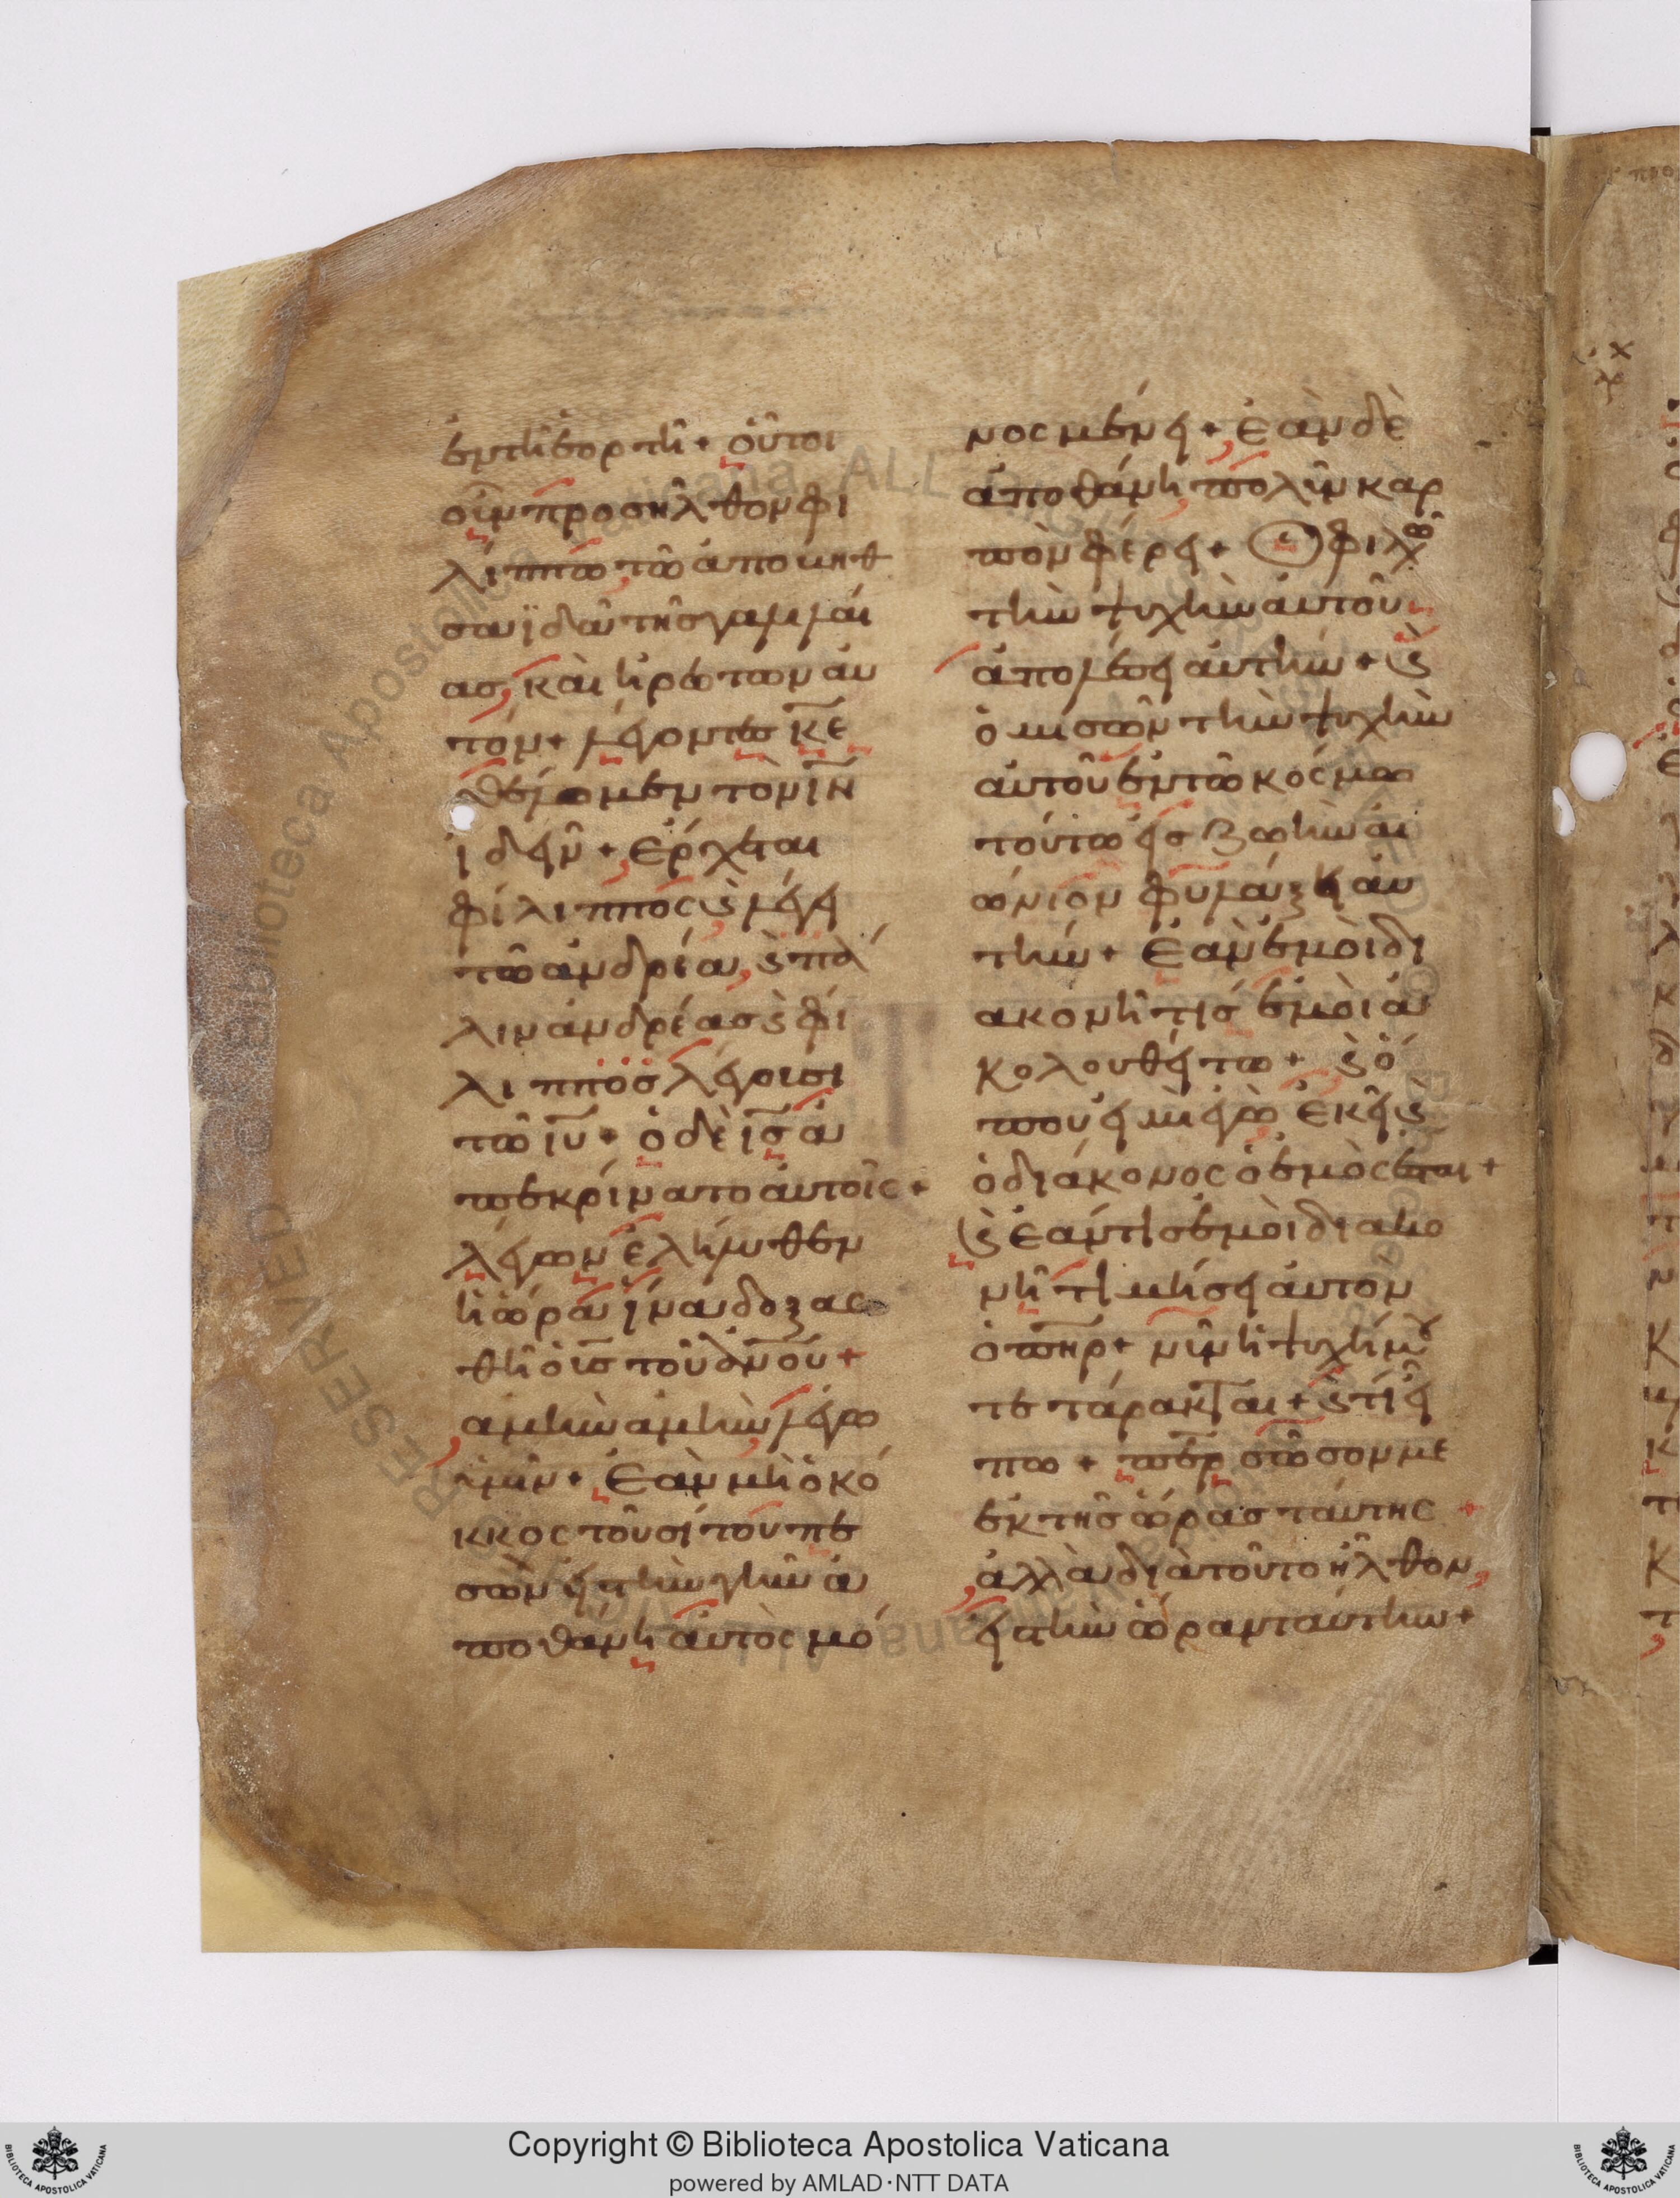 ἐν τῆ ἑορτῆ + οὗτοι
οὖν προσῆλθον φι
λίππω τῶ ἀπο βηθ
σαϊδὰ τῆς γαλιλαί
ας, καὶ ἠρώτων ἀυ
τόν + λέγοντες κε
θέλωμεν τὸν ιν
ἰδεῖν + ἔρχεται
φίλιππος ϛ λέγει
τῶ ἀνδρέα, ϛ πά
λιν ἀνδρέας ϛ φί
λιππος λέγουσι
τῶ ιυ + ὁ δὲ ις ἀ
πεκρίνατο ἀυτοῖς +
λέγων ἐλήλυθεν
ἡ ὥρα ἵνα δοξασ
θῆ ὁ ις τοῦ ανου +
ἀμὴν ἀμὴν λέγω
ὑμῖν + Ἐὰν μὴ ὁ κό
κκος τοῦ σίτου πε
σὼν εἰς τὴν γῆν ἀ
ποθάνη ἀυτὸς μό
νος μένει + Ἐὰν δὲ
ἀποθάνη, πολὺν καρ
πὸν φέρει + Ὁ φιλῶ
τὴν ψυχὴν ἀυτοῦ
ἀπολέσει ἀυτήν + ϛ
ὁ μισῶν τὴν ψυχὴν
ἀυτοῦ ἐν τῶ κόσμω
τούτω εἰς ζωὴν αἰ
ώνιον φυλάξει ἀυ
τήν + Ἐὰν ἐμοὶ δι
ακονῆ τίς ἐμοὶ ἀ
κολουθείτω + ϛ ὅ
που εἰμὶ ἐγὼ ἐκεῖ ϛ
ὁ διάκονος ὁ ἐμὸς ἔσται +
ϛ ἐάν τις ἐμοὶ διακο
νῆ τιμήσει ἀυτὸν
ὁ πηρ + νῦν ἡ ψυχή μου
τετάρακται + ϛ τί εἴ
πω + περ σῶσον με
ἐκ τῆς ὥρας ταύτης +
ἀλλὰ διὰ τοῦτο ἦλθον,
εἰς τὴν ὥραν ταύτην +
Copyright © Biblioteca Apostolica Vaticana
powered by AMLAD·NTT DATA